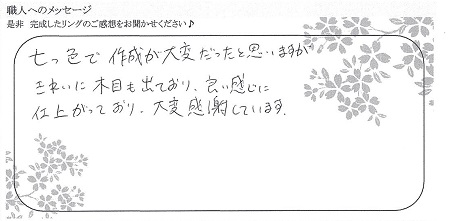 職人へのメッセージ
是非 完成したリングのご感想をお聞かせください♪
七つ色で 作成が大変だったと思いますが
きれいに 木目も出ており、良い感じに
仕上がっており、大変感謝しています。